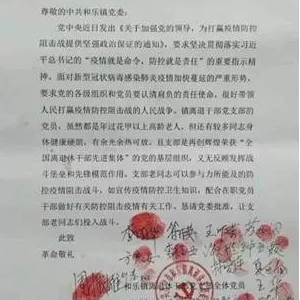 尊敬的中共和乐镇党委：
党中央近日发出《关于加强党的领导，为打赢疫情防控
阻击战提供坚强政治保证的通知》，要求坚决贯彻落实习近
平总书记的“疫情就是命令，防控就是责任”的重要指示
精神。面对新型冠状病毒感染肺炎疫情加快蔓延的严重形势，
要求党的各级组织和党员要认清肩负的责任使命，很好带领
人民打赢疫情防控阻击战的人民战争。镇离退干部党支部的党
员，虽然都是年过花甲以上高龄老人，但还有较多同志身
体健康硬朗，有余光余热可放，且支部是再创辉煌荣获“全
国离退休干部先进集体”的党的基层组织，又无反顾发挥战
斗堡垒和先锋模范作用。支部老同志可以参与力所能及的防
控疫情阻击战斗，如宣传疫情防控卫生知识，配合在职党员
干部做好有关防控疫情有关工作。恳请党委批准，让支
部老同志们投入战斗。
此致
革命敬礼
和乐镇离退休干部党支部全体党员